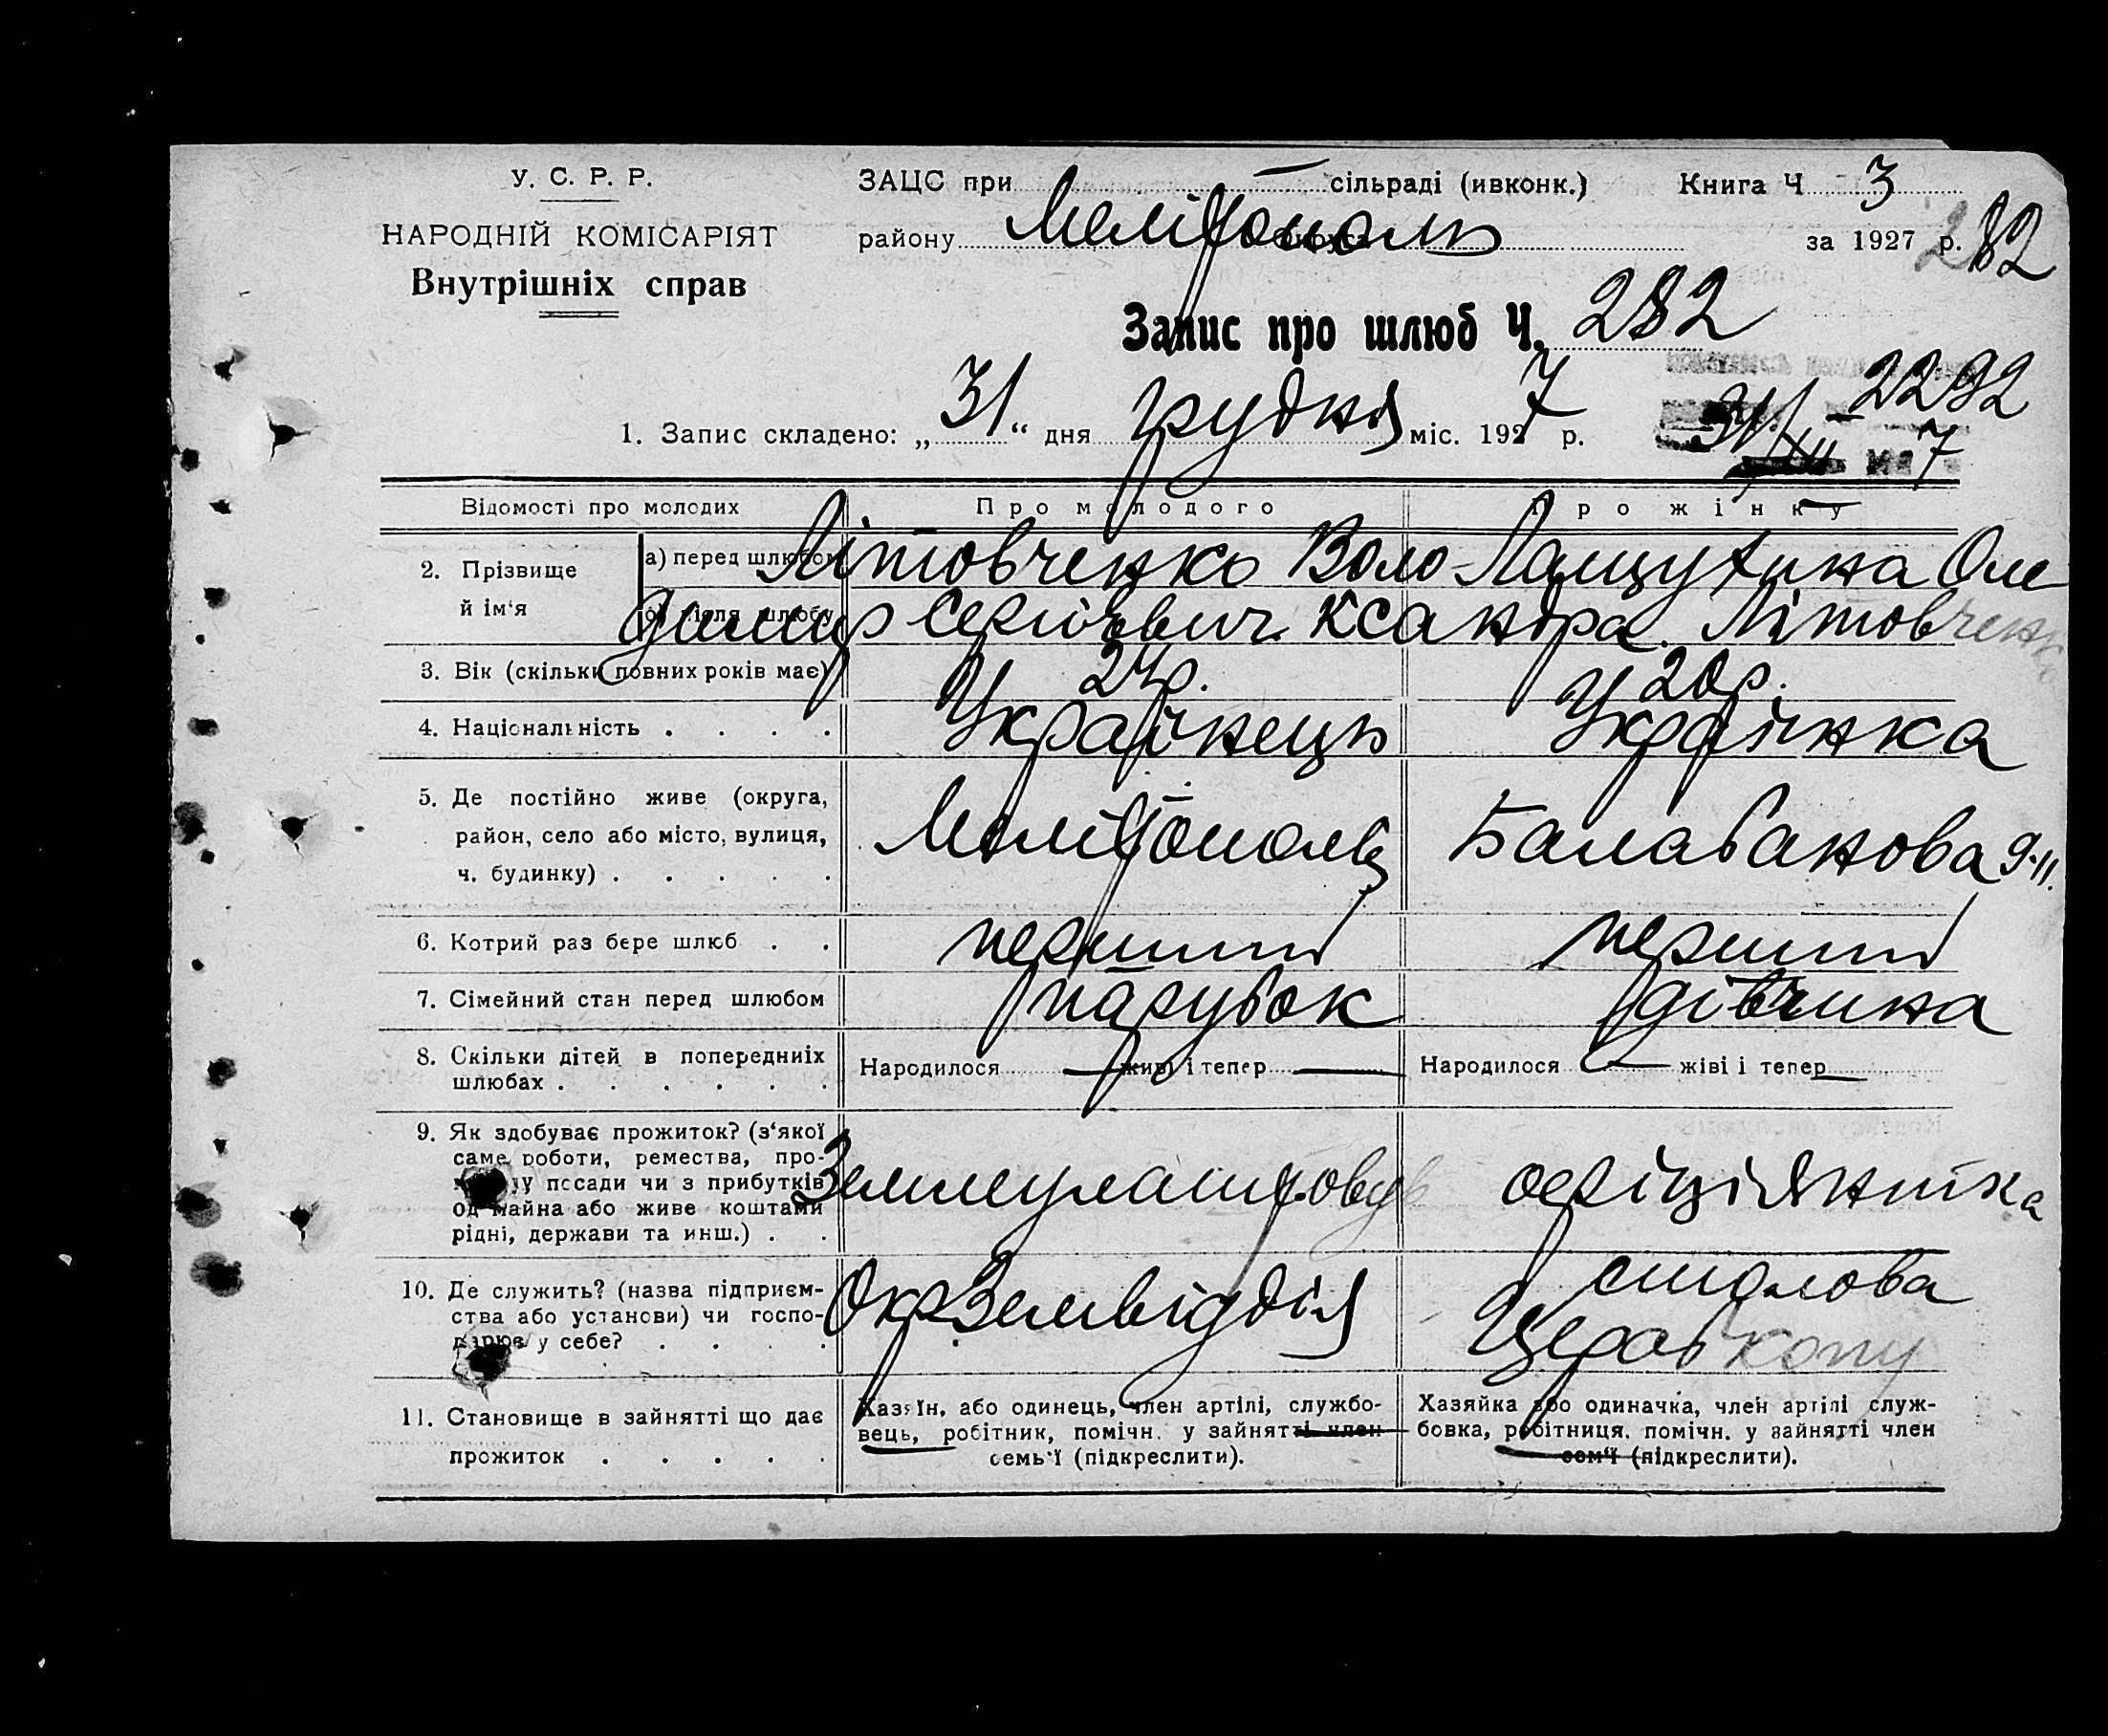 У. С. Р. Р.
НАРОДНІЙ КОМІСАРІЯТ
Внутрішніх справ
ЗАЦС при — сільраді (ивконк.) Книга Ч 3
району Мелітополь за 1927 р. 282
Запис про шлюб Ч. 282
2292
1. Запис складено: „31“ дня грудня міс. 1927 р. 31/XII 7
Відомості про молодих Про молодого Про жінку
2. Прізвище й ім‘я а) перед шлюбом Літовченко Воло- Оле
б) після шлюбу димир Сергієвич. ксандра. Літовченко
3. Вік (скільки повних років має) 24р. 20р.
4. Національність . . . . Українець Українка
5. Де постійно живе (округа, район, село або місто, вулиця, ч. будинку) . . . . . Мелітополь Балабанова 9-11.
6. Котрий раз бере шлюб . . перший перший
7. Сімейний стан перед шлюбом парубок дівчина
8. Скільки дітей в попередниіх шлюбах . . . . . . Народилося — живі і тепер — Народилося — жіві і тепер —
9. Як здобуває прожиток? (з‘якої саме роботи, ремества, про- посади чи з прибутків од майна або живе коштами рідні, держави та инш.) . . офіціянтка
10. Де служить? (назва підприєм- ства або установи) чи госпо- у себе? . . . . ОкрЗемвідділ столова Церабкопу
11. Становище в зайнятті що дає прожиток . . . . .
Хазяїн, або одинець, член артілі, службо-
вець, робітник, помічн. у зайнятті член
семь‘ї (підкреслити).
Хазяйка або одиначка, член артілі служ-
бовка, робітниця, помічн. у зайнятті член
сем‘ї (підкреслити).